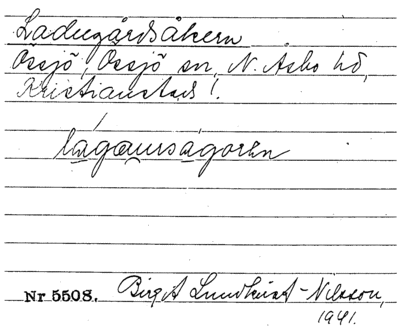 Ladugårdsåkern
Össjö, Össjö sn, N. Åsbo hd,
Kristianstads l.
lágaursågorən
Nr 5508. Birgit Lundkvist-Nilsson,
1941.